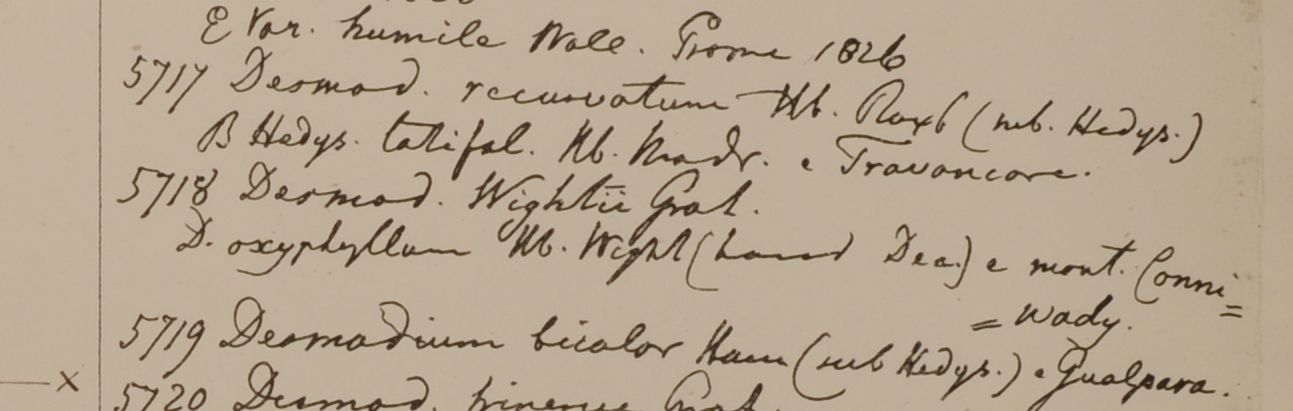 E Var. humile Wall. Prome 1826
5717 Desmod. recurvatum Hb. Roxb (sub. Hedys.)
B Hedys. latifol. Hb. Madr. e Travancore.
5718 Desmod. Wightii Grah.
D. oxyphyllum Hb. Wight (haud Dec.) e mont. Conni=
=wady.
5719 Desmodium bicolor Ham (sub Hedys.) e Gualpara.
5720 Desmod. Grah.
x